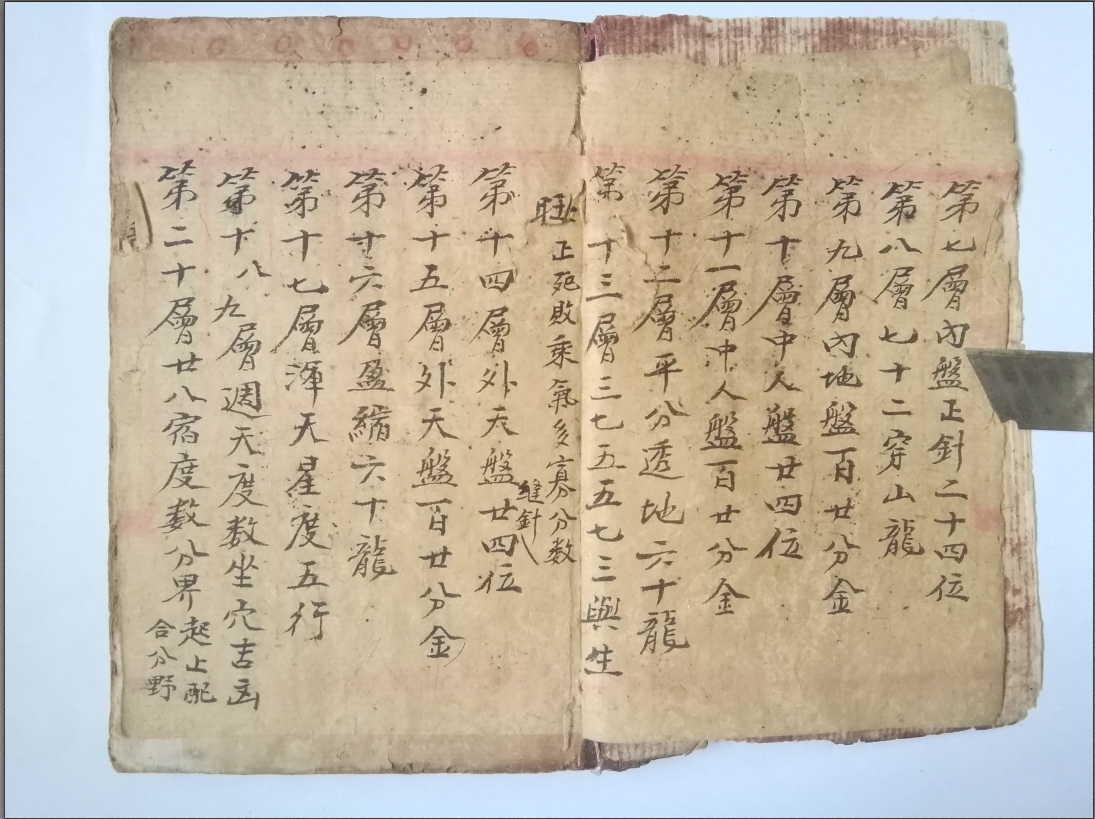 第七層內盤正針二十四位
第八層七十二穿山龍
第九層內地盤百廿分金
第十層中人盤廿四位
第十一層中人盤百廿分金
第十二層平分透地六十龍
第十三層三七五五七三與生
旺正死敗乘氣多寡分数
第十四層外天盤廿四位縫針
第十五層外天盤百廿分金
第十六層盈縮六十龍
第十七層渾天星度五行
第十八九層週天度数坐穴吉凶
第二十層廿八宿度数分界起上配合分野